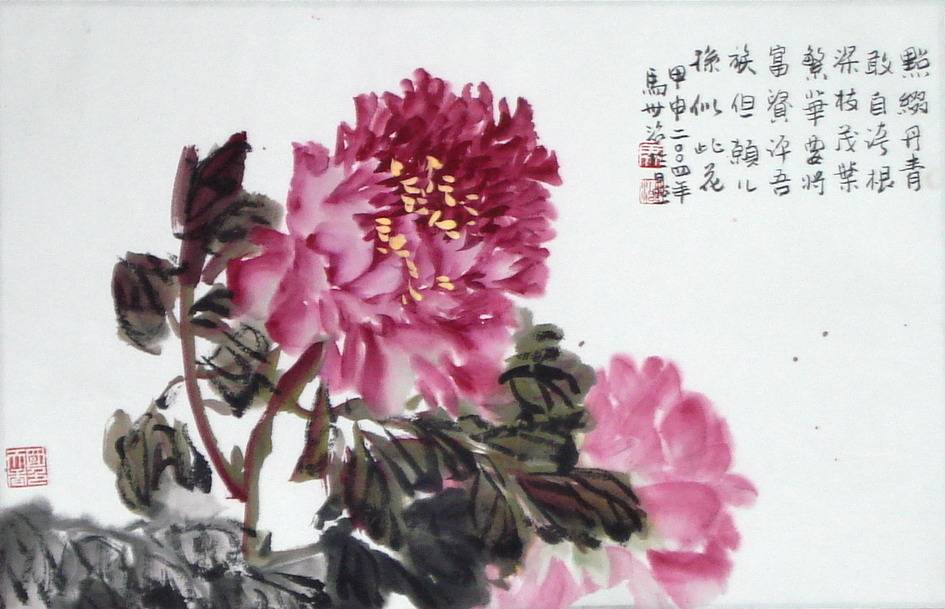 點綴丹青
敢自誇根
深枝茂葉
繁華要將
富資評吾
族但願儿
孫似此花
甲申二〇〇四年
馬世治